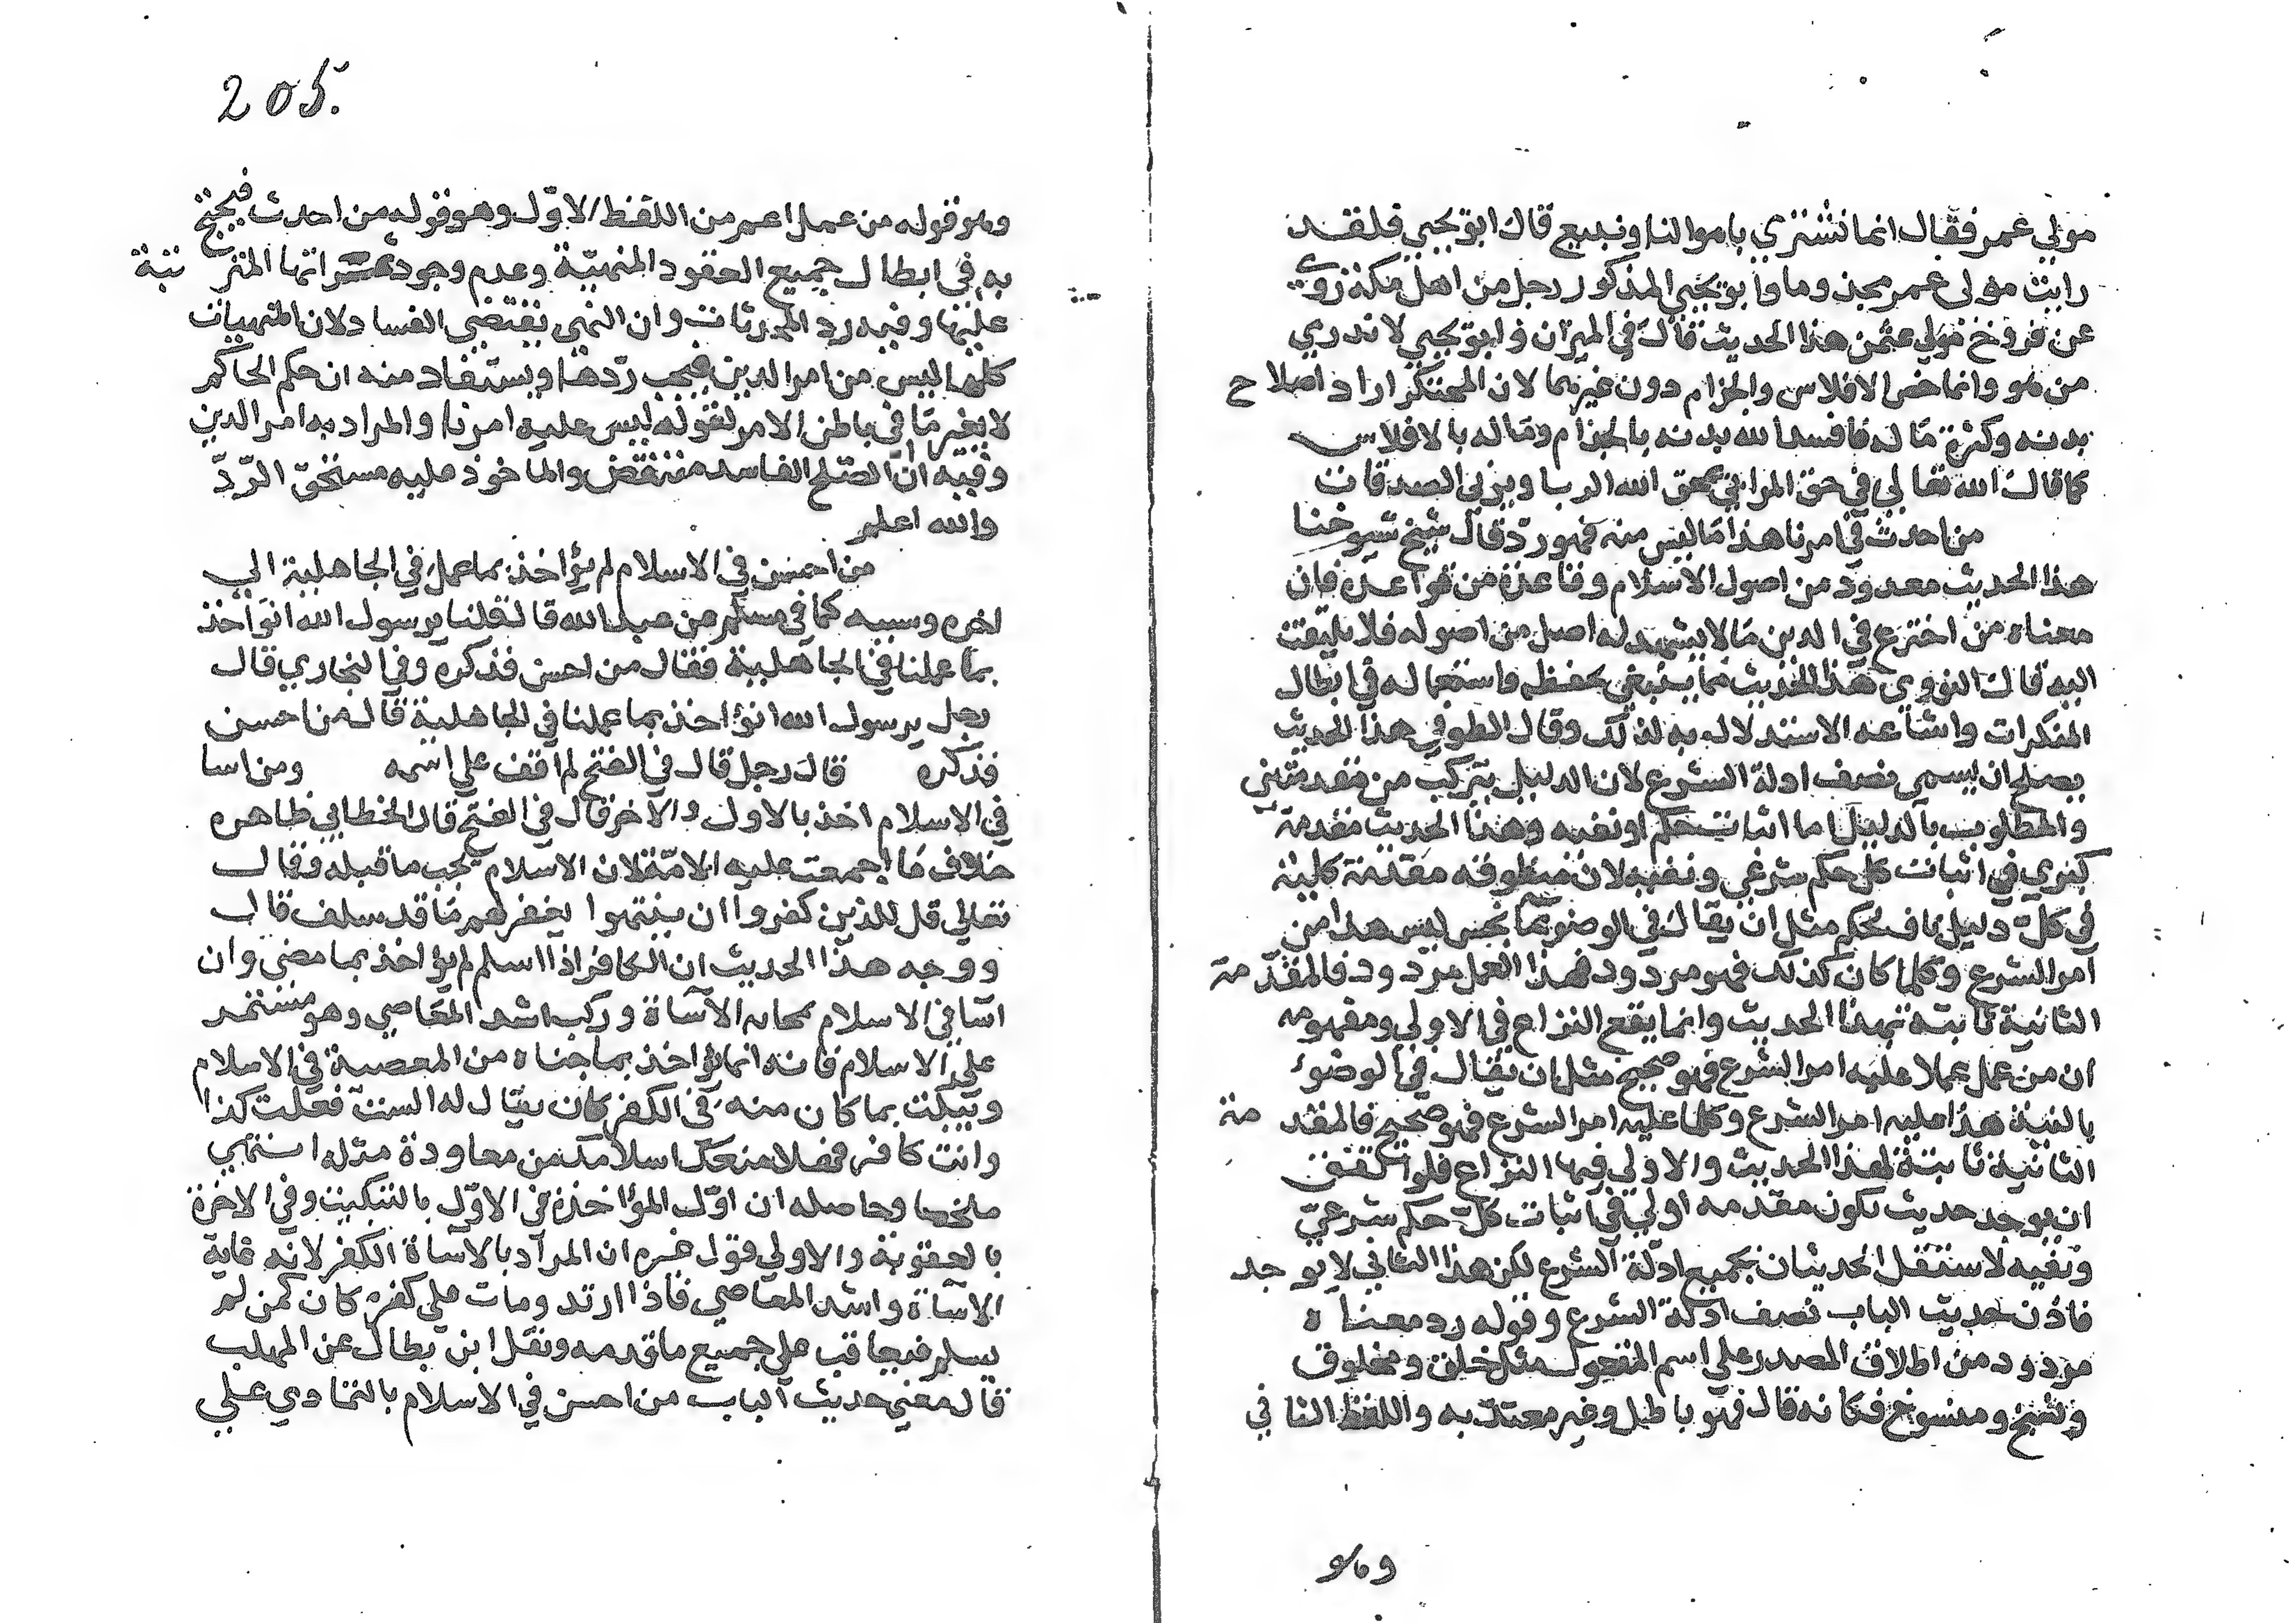 مولي عمر فقال انما نشتري باموالنا ونبيع قال ابو يحيي فلقد
رايت مولى عمر مجذوما وابو يحيى المذكور رجل من اهل مكة روى
عن فروخ مولي عثمن هذا الحديث قال في الميزان وابو يحيي لا ندري
من هو وانما خص الافلاس والجزام دون غيرهما لان المحتكر اراد اصلاح
بدنه وكثرة ماله فافسد الله بدنه بالجذام وماله بالافلاس
كما قال الله تعالي في حق المرابي يمحق الله الربا ويربي الصدقات
من احدث في امرنا هذا ما ليس منه فهو رد قال شيخ شيوخنا
هذا الحديث معدود من اصول الاسلام وقاعدة من قواعده فان
معناه من اخترع في الدين ما لا يشهد له اصل من اصوله فلا يلتفت
اليه قال النووي هذا الحديث مما ينبغي حفظه واستعماله في ابطال
المنكرات واشاعه الاستدلال به لذلك وقال الطوفي هذا الحديث
يصلح ان يسمى نصف ادلة الشرع لان الدليل يتركب من مقدمتين
والمطلوب بالدليل اما اثبات حكم او نفيه وهذا الحديث مقدمة
كبري في اثبات كل حكم شرعي ونفيه لان منطوقه مقدمة كلية
في كل دليل ناف لحكم مثل ان يقال في الوضو بما نجس ليس هذا من
امر الشرع وكلما كان كذلك فهو مردود فهذا العمل مردود فالمقدمة
الثانية ثابتة بهذا الحديث وانما يقع النزاع في الاولي ومفهومه
ان من عمل عملا عليه امر الشرع فهو صحيح مثل ان يقال في الوضوء
بالنية هذا عليه امر الشرع وكلما عليه امر الشرع فهو صحيح فالمقدمة
الثانية ثابتة لهذا الحديث والاولي فيها النزاع فلو اتفق
ان يوجد حديث يكون مقدمه اولي في اثبات كل حكم شرعي
ونفيه لاستقل الحديثان بجميع ادلة الشرع لكن هذا الثاني لا يوجد
فاذن حديث الباب نصف ادلة الشرع وقوله رد معناه
مردود من اطلاق المصدر علي اسم المفعول مثل خلق ومخلوق
ونسخ ومنسوخ فكانه قال فهو باطل وغير معتد به واللفظ الثاني
وهو
205.
وهو قوله من عمل اعم من اللفظ الاول وهو قوله من احدث فيحتج
به في ابطال جميع العقود المنهية وعدم وجود ثمراتها المترتبة
عليها وفيه رد المحدثات وان النهي يقتضي الفساد لان المنهيات
كلها ليس من امر الدين فيجب ردها ويستفاد منه ان حكم الحاكم
لا يغير ما في باطن الامر لقوله ليس عليه امرنا والمراد به امر الدين
وفيه ان الصلح الفاسد منتقض والماخوذ عليه مستحق الرد
والله اعلم
من احسن في الاسلام لم يؤاخذ بما عمل في الجاهلية الي
اخره وسببه كما في مسلم عن عبد الله قال قلنا يرسول الله انواخذ
بما عملنا في الجاهلية فقال من احسن فذكره وفي البخاري قال
رجل يرسول الله انؤاخذ بما عملنا في الجاهلية قال من احسن
فذكره قال رجل قال في الفتح لم اقف علي اسمه ومن اسا
في الاسلام اخذ بالاول والاخر قال في الفتح قال الخطابي ظاهره
خلاف ما اجمعت عليه الامة لان الاسلام يجب ما قبله وقال
تعالي قل للذين كفروا ان ينتهوا يغفر لهم ما قد سلف قال
ووجه هذا الحديث ان الكافر اذا اسلم لم يؤاخذ بما مضى وان
اسا في الاسلام الاساة وركب اشد المعاصي وهو مستمر
علي الاسلام فانه انما يؤاخذ بما جناه من المعصية في الاسلام
ويبكت بما كان منه في الكفر كان يقال له الست فعلت كذا
وانت كافر فهلا منعك اسلامك من معاودة مثله انتهي
ملخصا وحاصله ان اول المؤاخذة في الاول بالتبكيت وفي الاخرة
بالعقوبة والاولي قول غيره ان المراد بالاساة الكفر لانه غاية
الاساة واشد المعاصي فاذا ارتد ومات علي كفره كان كمن لم
يسلم فيعاقب علي جميع ما قدمه ونقل ابن بطال عن المهلب
قال معني حديث الباب من احسن في الاسلام بالتمادي علي